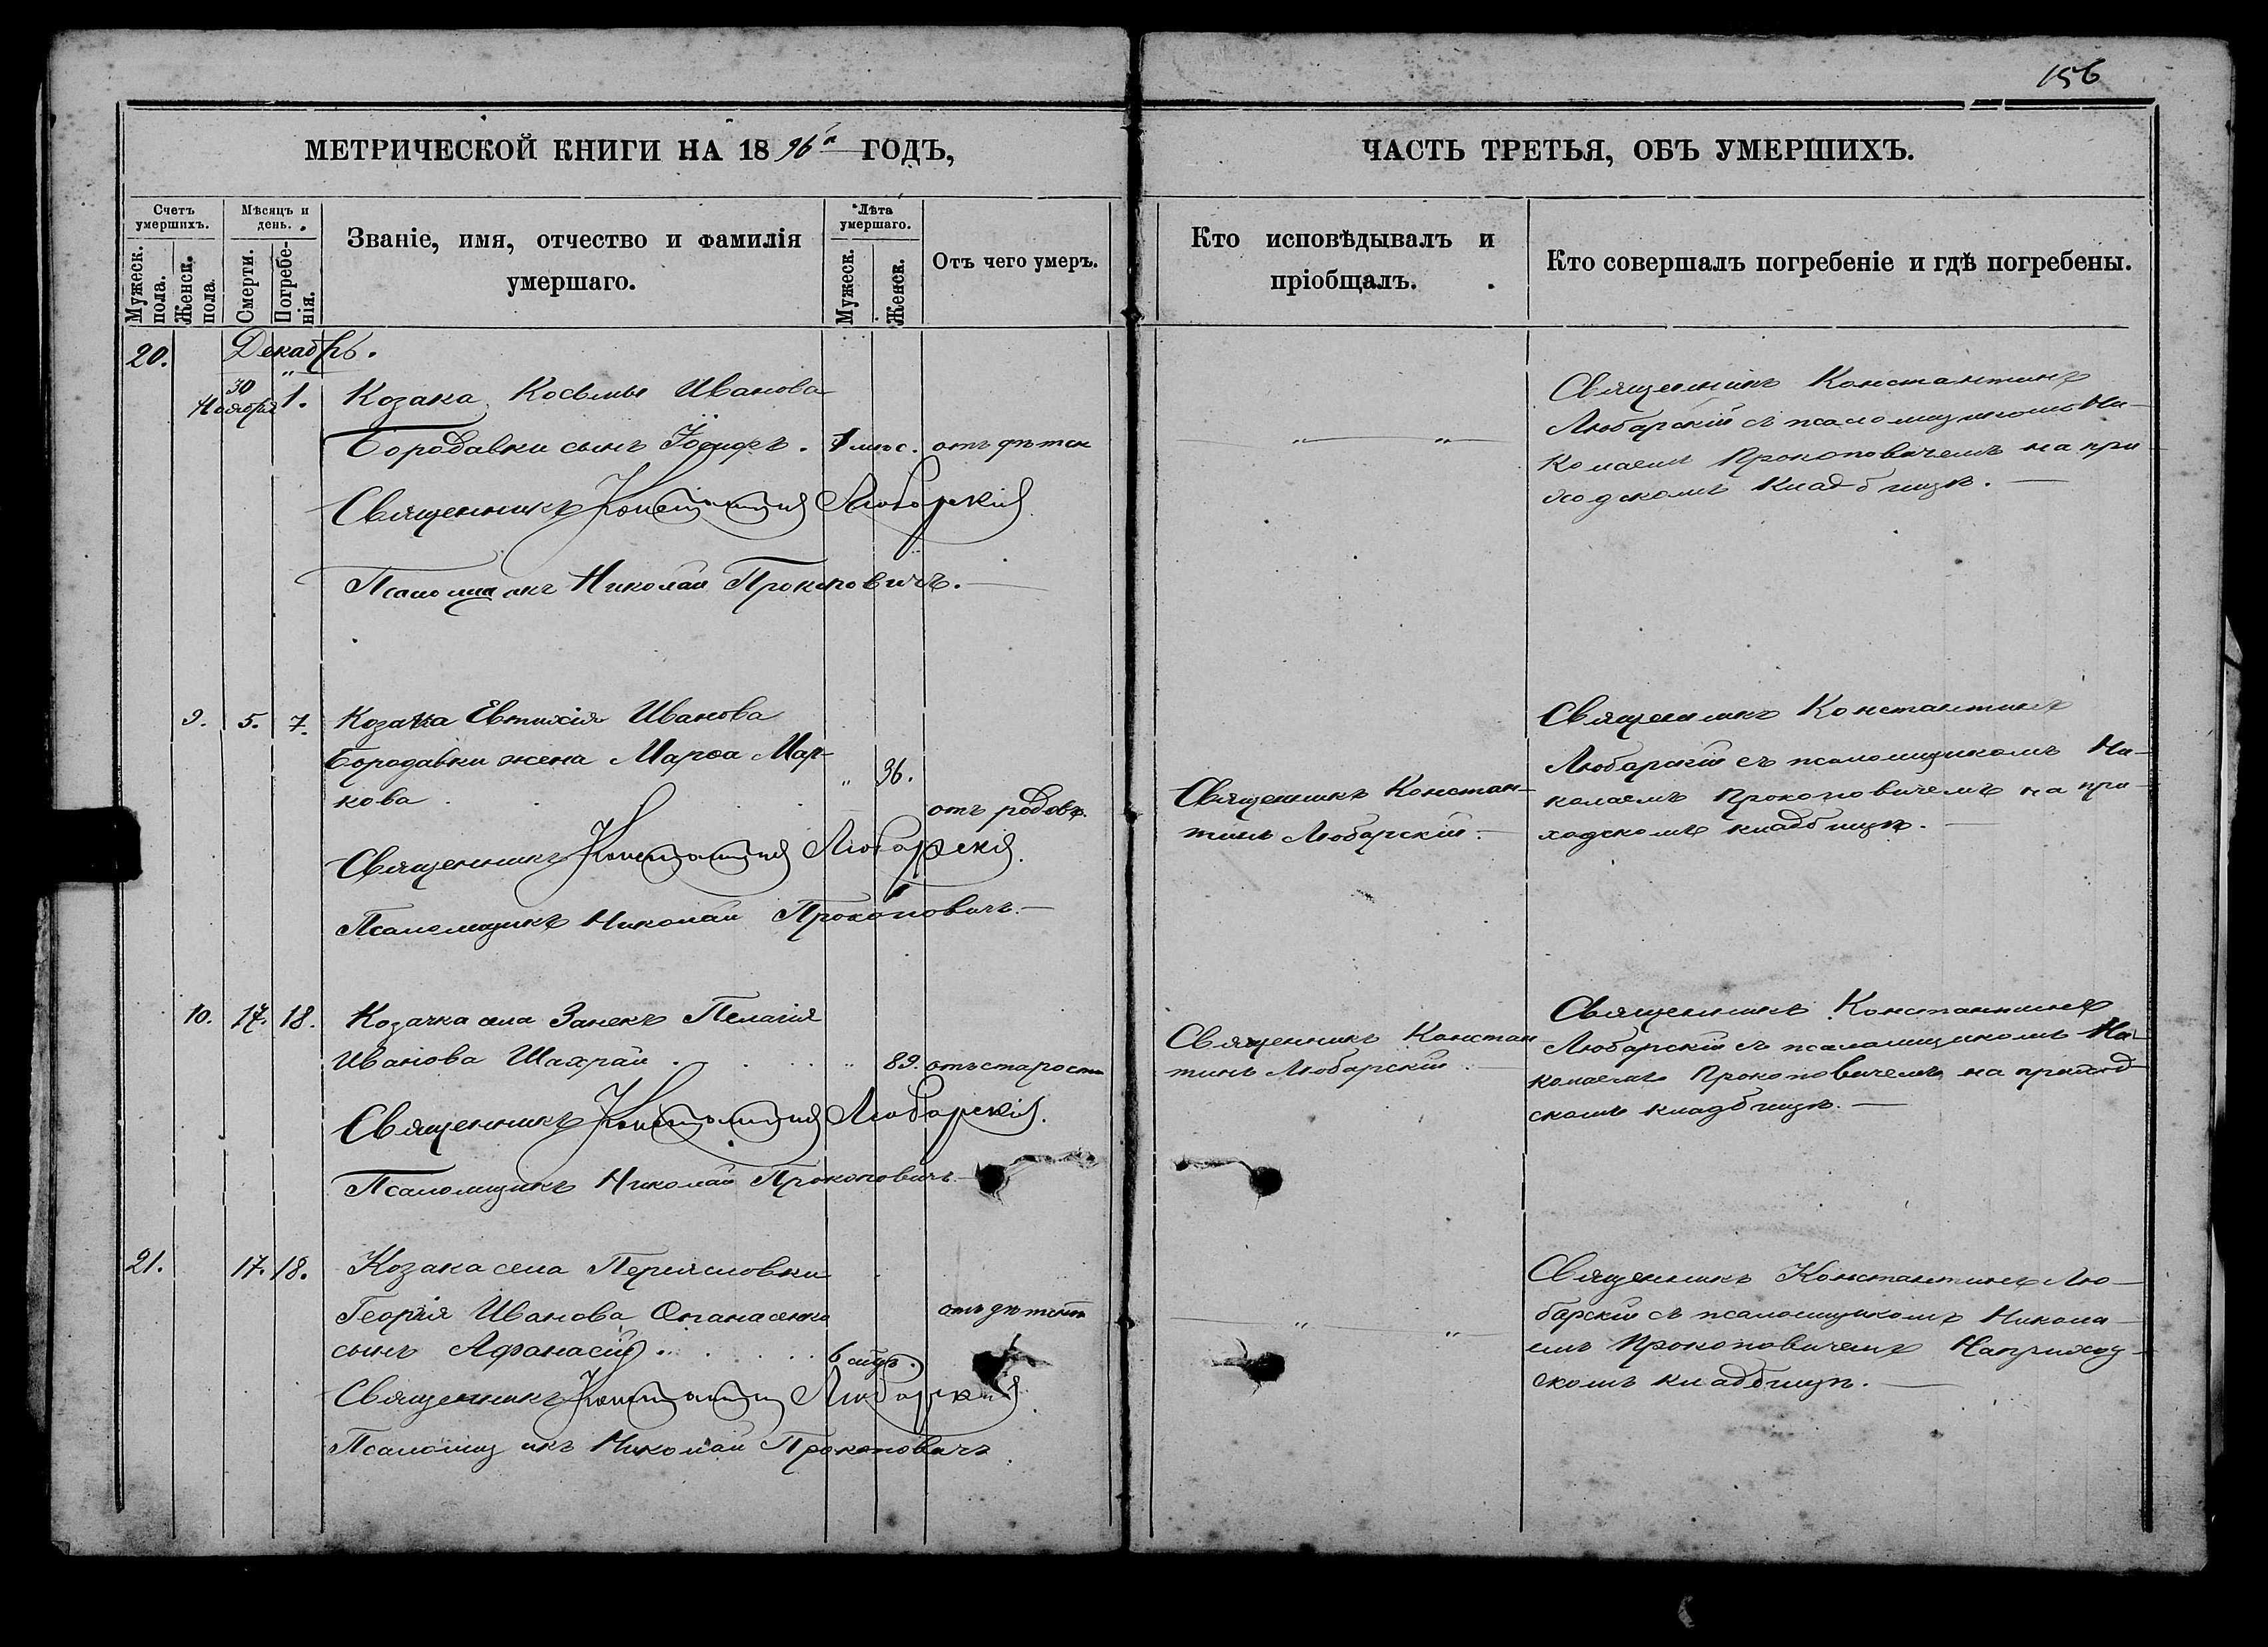 156
МЕТРИЧЕСКОЙ КНИГИ НА 1896й ГОДЪ,
ЧАСТЬ ТРЕТЬЯ, ОБЪ УМЕРШИХЪ.
Счетъ умершихъ.
Мужеск. пола.
Женск. пола.
Мѣсяцъ и день.
Смерти.
Погребенія.
Званіе, имя, отчество и фамилія
умершаго.
Лѣта умершаго.
Мужеск.
Женск.
Отъ чего умеръ.
Кто исповѣдывалъ и
пріобщалъ.
Кто совершалъ погребеніе и гдѣ погребены.
Декабрь.
20.
30 Ноября
1.
Козака Косьмы Иванова
Бородавки сынъ Іосифъ. 1 мѣс.
Священникъ Константинъ Любарскій
Псаломщикъ Николай Прокоповичъ.
Священникъ Константинъ
Любарскій съ псаломщикомъ Ни-
колаемъ Прокоповичемъ на при-
ходскомъ кладбищѣ.
9. 5. 7. Козака Евтихія Иванова
Бородавки жена Марѳа Мар-
кова 36.
отъ родовъ.
Священникъ Константинъ Любарскій
Псаломщикъ Николай Прокоповичъ.
Священникъ Констан-
тинъ Любарскій.
Священникъ Константинъ
Любарскій съ псаломщикомъ Ни-
колаемъ Прокоповичемъ на при-
ходскомъ кладбищѣ.
10. 17. 18. Козачка села Занекъ Пелагія
Иванова Шахрай 89. отъ старости
Священникъ Константинъ Любарскій.
Псаломщикъ Николай Прокоповичъ
Священникъ Констан-
тинъ Любарскій.
Священникъ Константинъ
Любарскій съ псаломщикомъ Ни-
колаемъ Прокоповичемъ на приход-
скомъ кладбищѣ.
21. 17. 18. Козака села Переясловки
Георгія Иванова Опанасенко
сынъ Афанасій. 6
Священникъ Константинъ Любарскій
Псаломщикъ Николай Прокоповичъ
Священникъ Константинъ Лю-
барскій съ псаломщикомъ Никола-
емъ Прокоповичемъ на приход-
скомъ кладбищѣ.